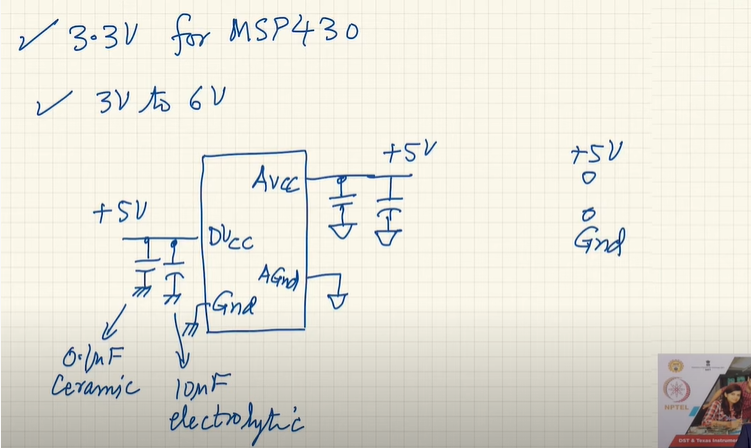 ✓ 3.3V for MSP430
✓ 3V to 6V
+5V
AVCC
+5V
DVCC
AGnd
Gnd
0.1μF
Ceramic
10μF
electrolytic
+5V
Gnd
NPTEL
DST & Texas Instrumen